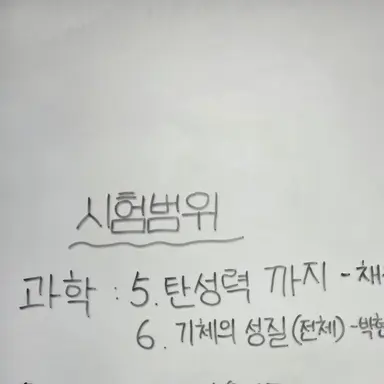 시험범위
과학 : 5. 탄성력 까지 -
6. 기체의 성질(전체) -